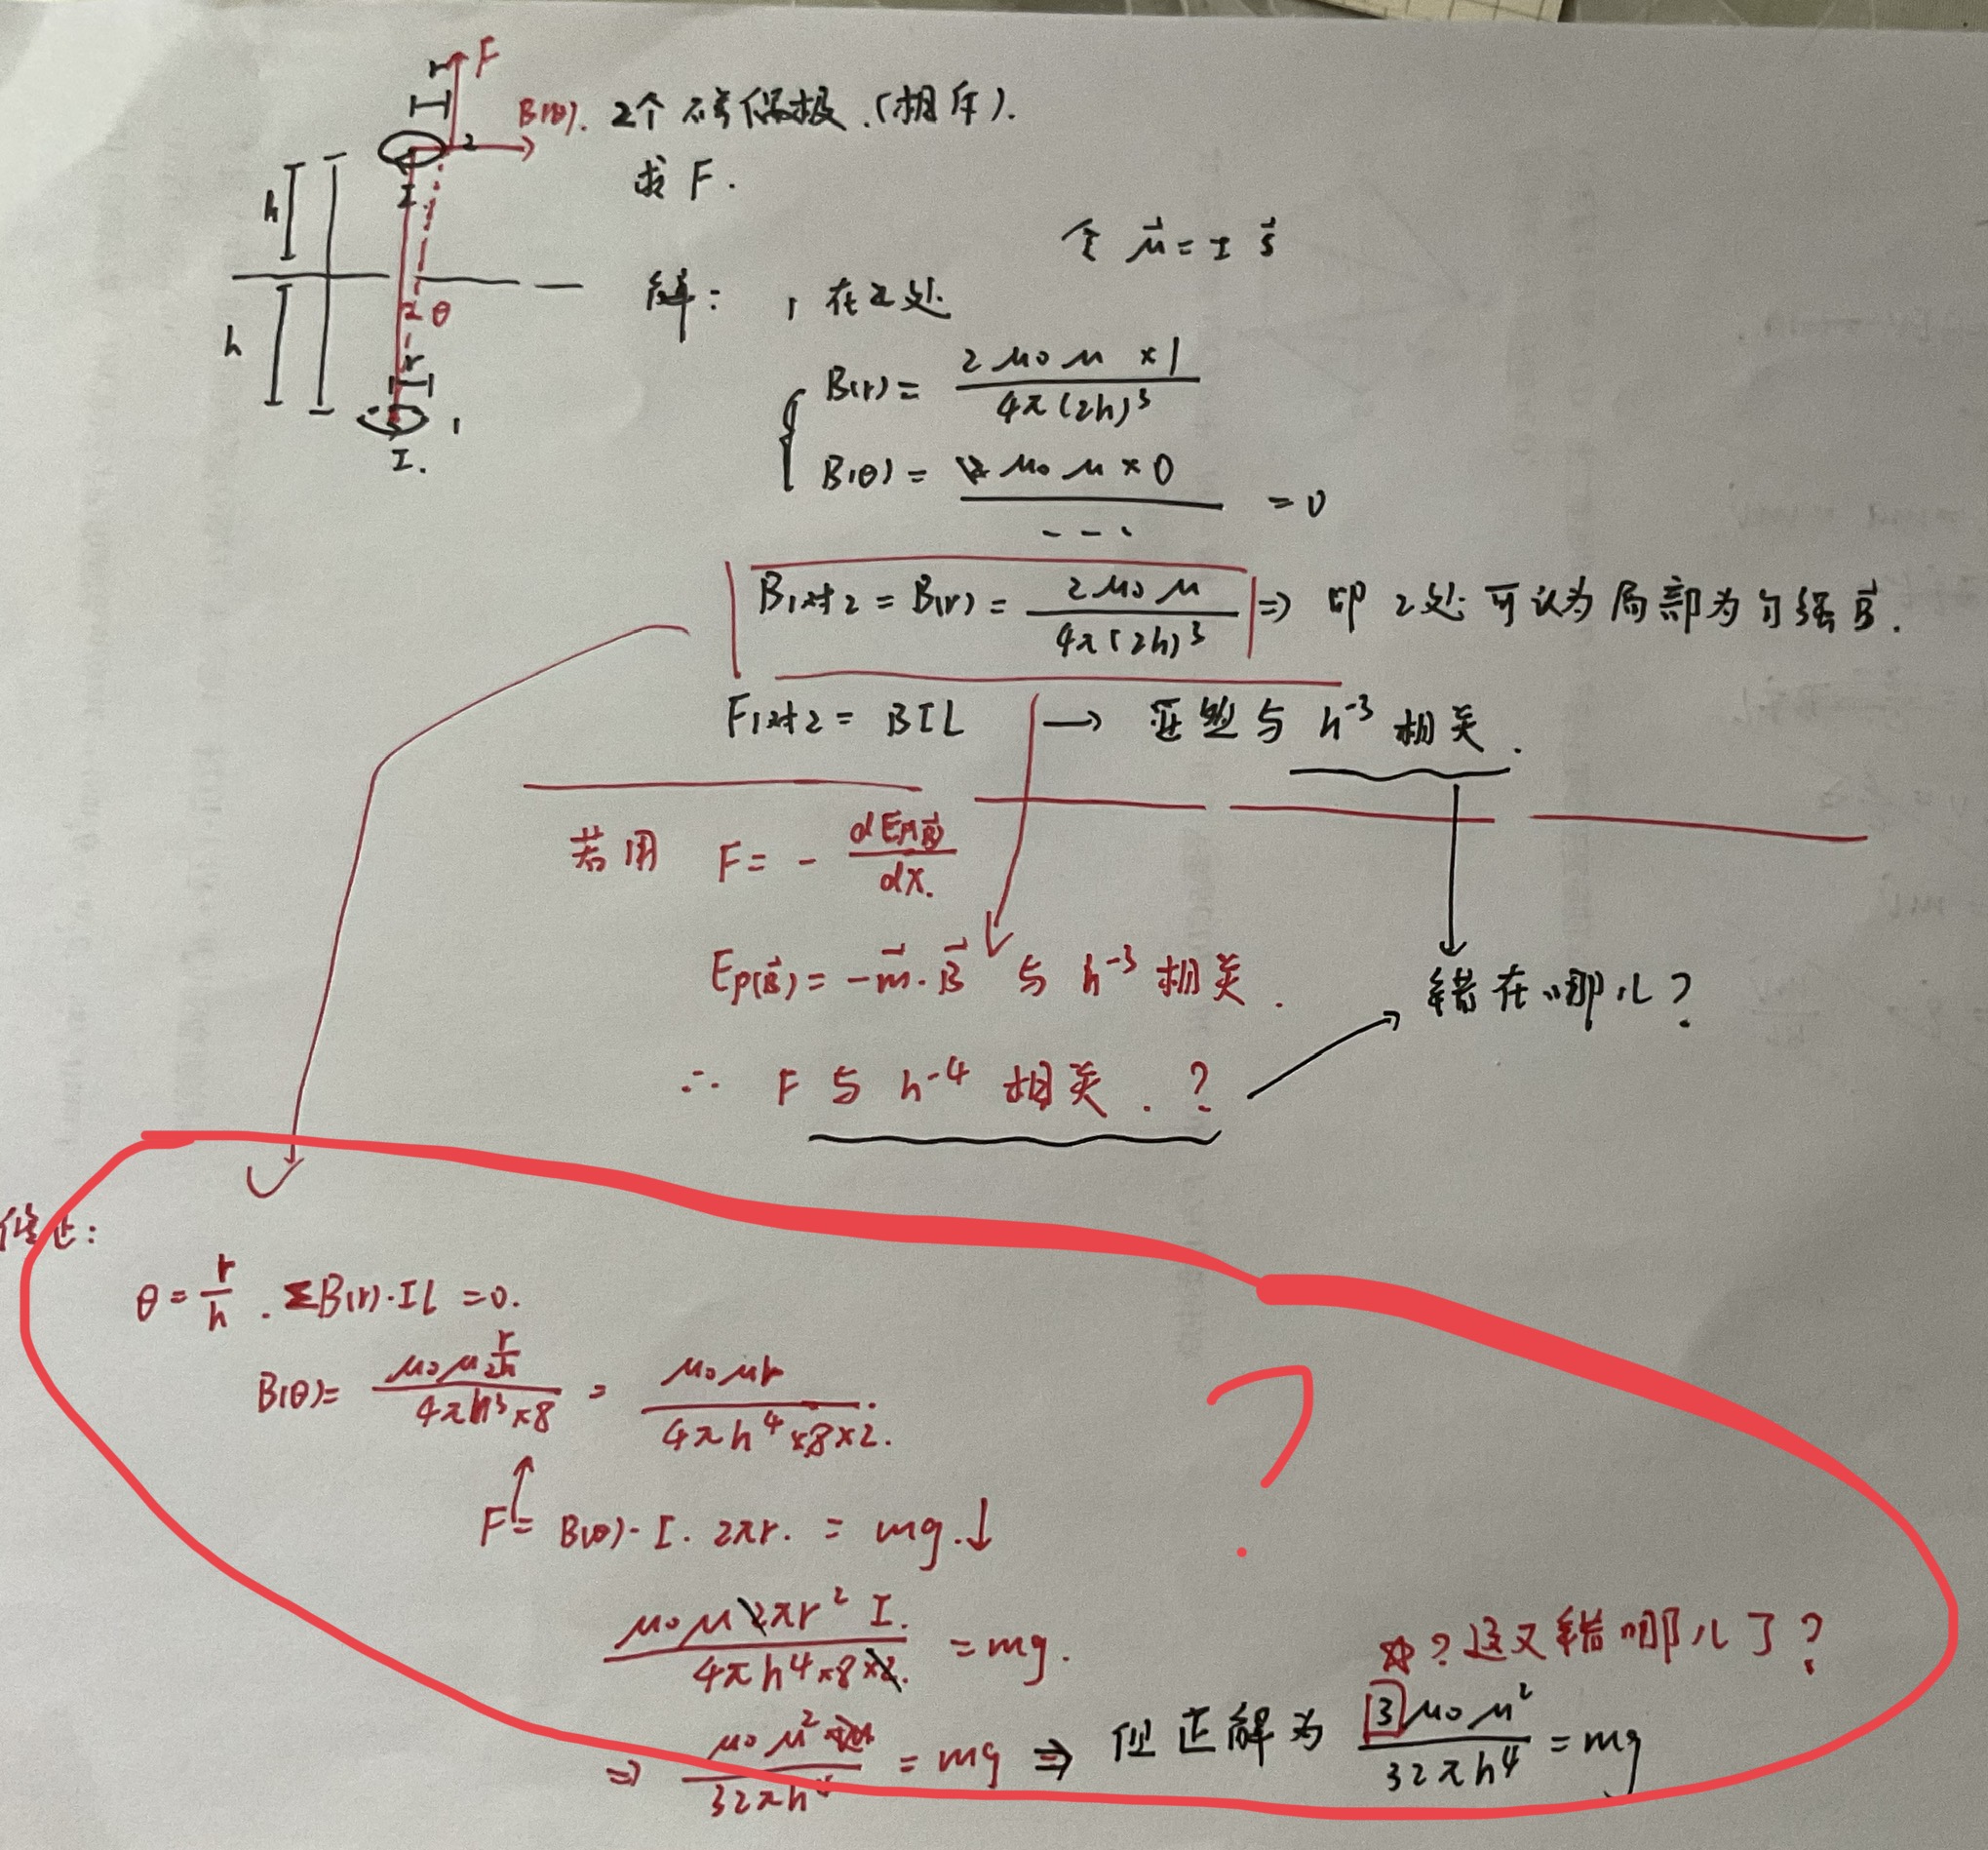 F
r
B(θ). 2个磁偶极.(相斥).
2
求 F.
I
h
令 μ⃗ = I s⃗
θ
解: 1在2处
h
r
B(r) = 2μ₀μ×1 / 4π(2h)³
1
I.
B(θ) = μ₀μ×0 / ... = 0
B1对2 = B(r) = 2μ₀μ / 4π(2h)³ ⇒ 即2处可认为局部为匀强B⃗.
F1对2 = BIL → 与 h⁻³ 相关.
若用 F = - dEp(B⃗) / dx.
Ep(B⃗) = -m⃗·B⃗ 与 h⁻³ 相关.
错在哪儿?
∴ F 与 h⁻⁴ 相关.?
修正:
θ = r/h . ΣB(r)·IL = 0.
B(θ) = μ₀μ r/2h / 4πh³×8 = μ₀μr / 4πh⁴×8×2.
F = B(θ)·I·2πr. = mg.↓
μ₀μ2πr²I. / 4πh⁴×8×2. = mg.
☆?这又错哪儿了?
⇒ μ₀μ² / 32πh⁴ = mg ⇒ 但正解为 3μ₀μ² / 32πh⁴ = mg